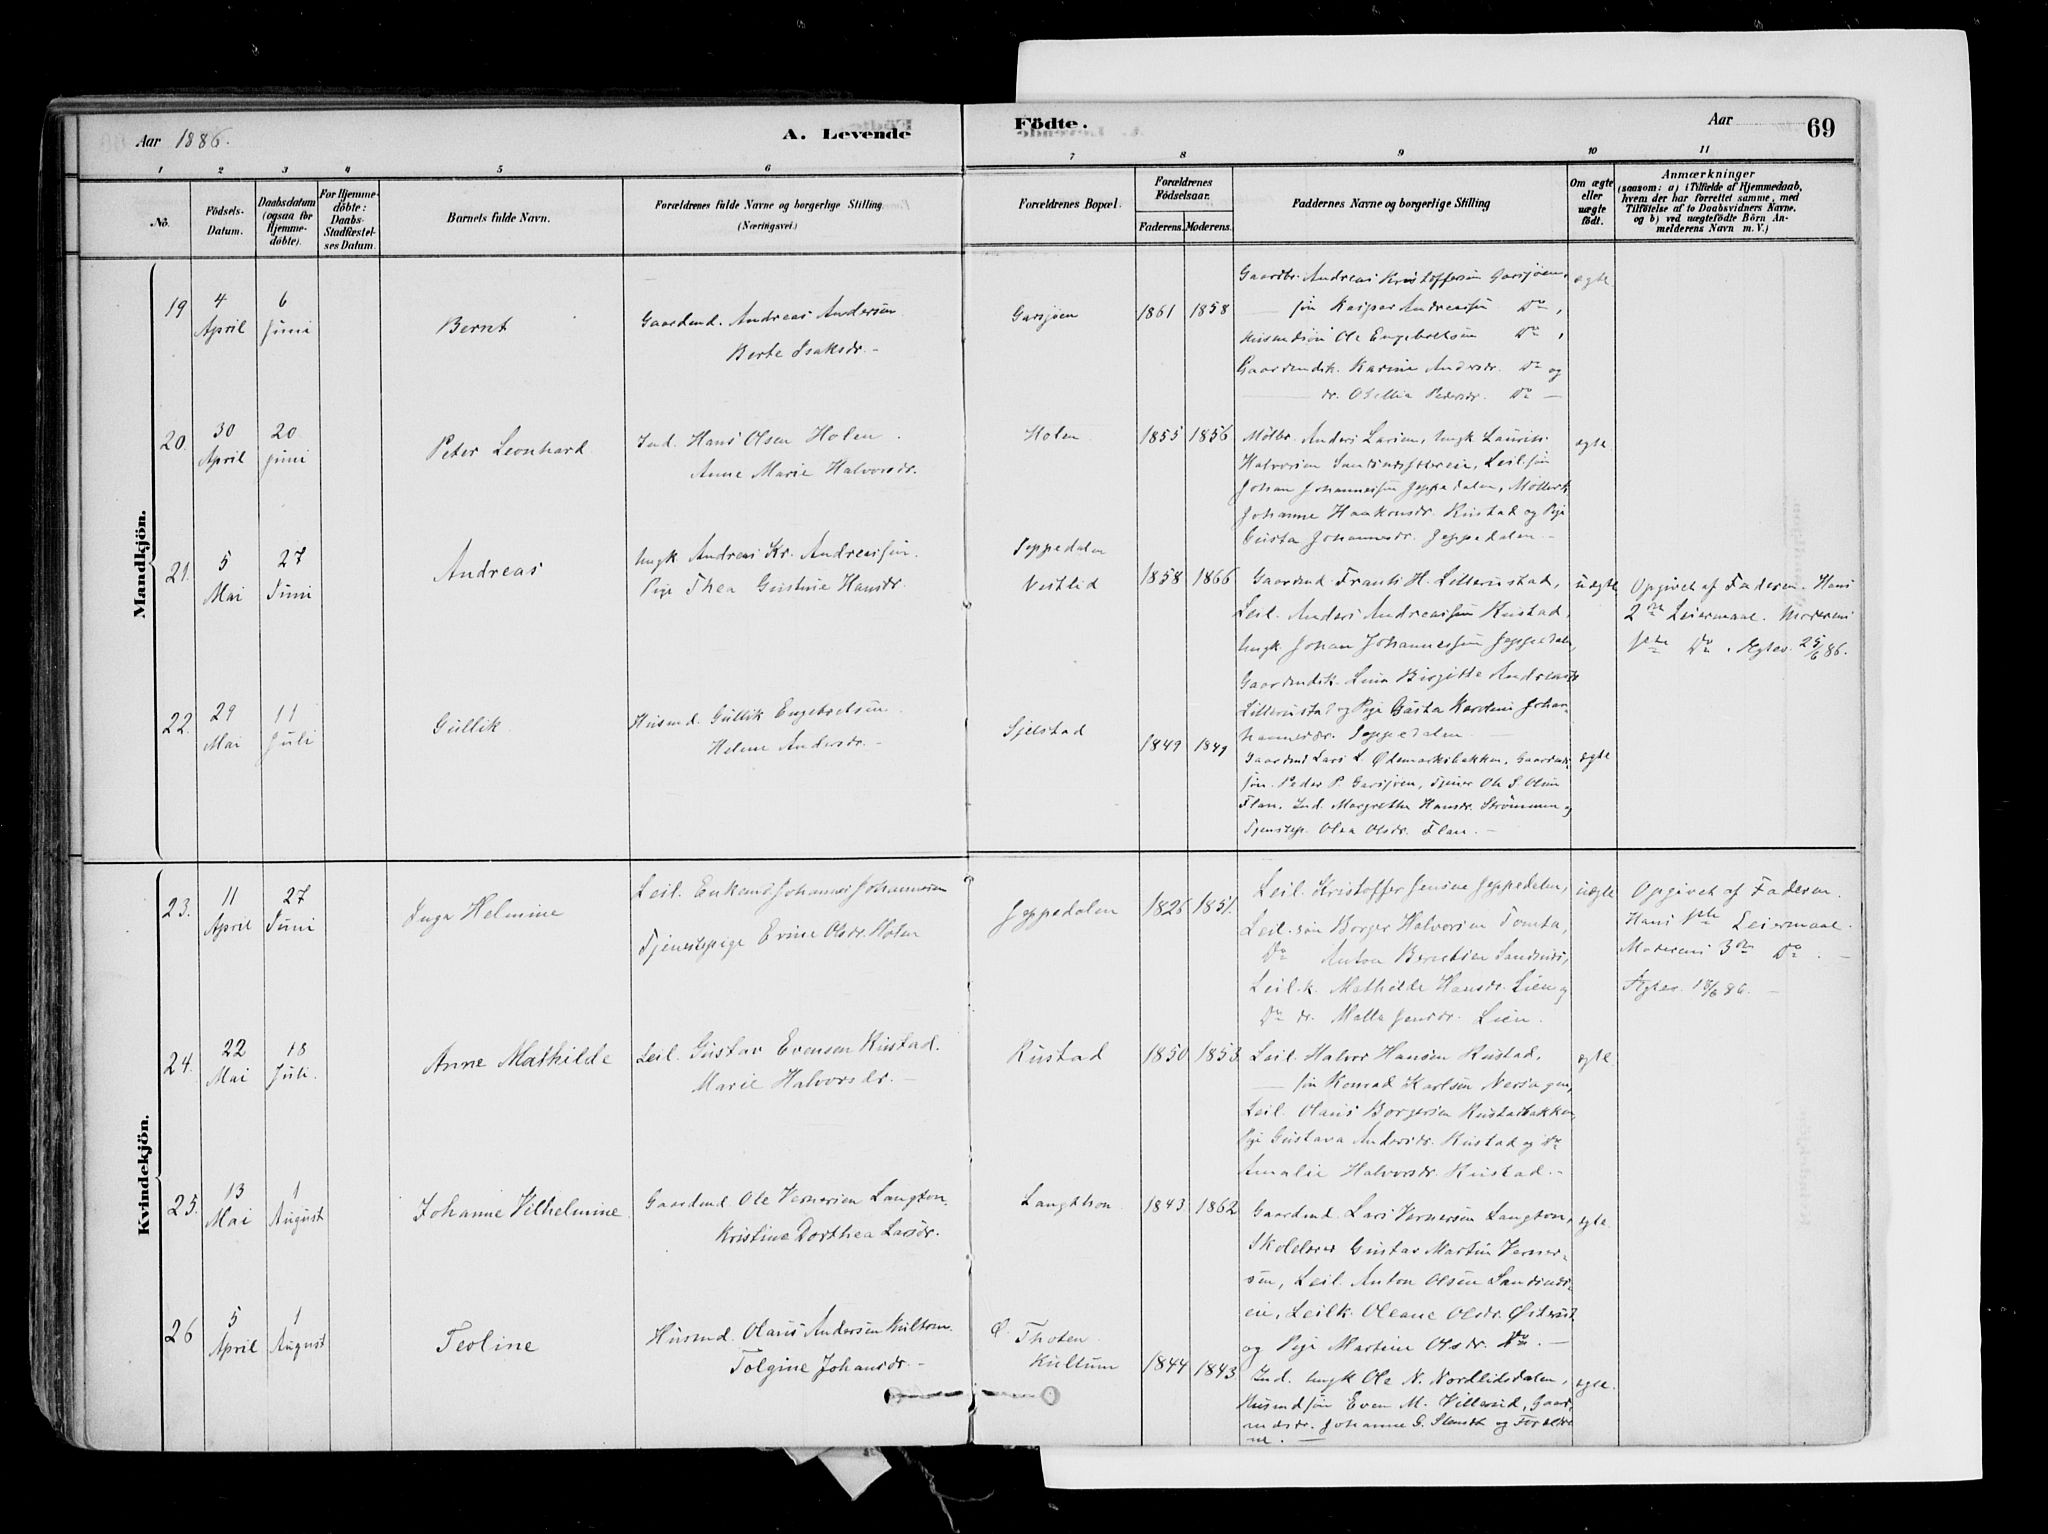 Aar 1886.
A. Levende
Födte.
Aar
69
1 2 3 4 5 6 7 8 9 10 11
No.
Födsels-
Datum.
Daabsdatum
(ogsaa for
Hjemme-
döbte).
For Hjemme-
döbte:
Daabs-
Stadfæstel-
ses Datum.
Barnets fulde Navn.
Forældrenes fulde Navne og borgerlige Stilling
(Næringsvei.)
Forældrenes Bopæl.
Forældrenes
Födselsaar.
Faderens. Moderens.
Faddernes Navne og borgerlige Stilling
Om ægte
eller
uægte
födt.
Anmærkninger
(saasom: a) i Tilfælde af Hjemmedaab,
hvem der har forrettet samme, med
Tilföielse af to Daabsvidners Navne.
og b) ved uægtefödte Börn An-
melderens Navn m. V.)
Mandkjön.
19
4
April
6
Juni
Bernt
Gaardmd. Andreas Andersen
Berte Isaksdr. -
Garsjøen
1861 1858
Gaardbr. Andreas Kristoffersen Garsjøen,
— søn Kaspar Andreassen Do,
Husmdsøn Ole Engebretsen Do,
Gaardmdsk. Karine Andersdr. Do og
— dr. Otellia Pedersdr. Do —
ægte
20.
30
April
20
Juni
Peter Leonhard
Ind. Hans Olsen Holen.
Anne Marie Halvorsdr.
Holen
1855 1856
Mølbr. Anders Larsen, Ungk. Laurits
Halvorsen, Leil. søn
Johan Johannessen Jeppedalen,
Johanne Haakonsdr. Rustad og Pige
Gusta Johannesdr. Jeppedalen. -
ægte
21.
5
Mai
27
Juni
Andreas
Ungk. Andreas Kr. Andreassen.
Pige Thea Gustine Hansdr.
Jeppedalen
Vestlid
1858 1866
Gaardmd. Frants H. Litterustad,
Leil. Anders Andreassen Rustad,
Ungk. Johan Johannessen Jeppedalen,
Gaardmdsk. Lina Birgitte Andreasdr.
Litterustad og Pige Gusta Karoline Johan-
nesdr. Jeppedalen. —
uægte
Opgivet af Faderen. Hans
2det Leiermaal. Moderens
1ste Do. Attest. 25/6 86.
22.
29
Mai
11
Juli
Gullik
Husmd. Gullik Engebretsen.
Helene Andersdr. -
Sjelstad
1849 1849
Gaardmd. Lars L. Ødemarksbakken, Gaardmds-
søn Peder P. Garsjøen, Tjener Ole S. Olsen
Flan. Ind. Margrethe Hansdr. Strømmen og
Tjenstep. Olea Olsdr. Flan. —
ægte
Kvindekjön.
23.
11
April
27
Juni
Inga Helmine
Leil. Enkemd. Johannes Johannesen
Tjenestepige Evine Olsdr. Holen
Jeppedalen
1826 1851.
Leil. Kristoffer Jensen Jeppedalen,
Leil. søn Borger Halvorsen Tomta,
Do Anton Berntsen Sandsnes,
Leil. k. Mathilde Hansdr. Lien og
Do dr. Malla Jensdr. Lien.
uægte
Opgivet af Faderen.
Hans 1ste Leiermaal.
Moderens 3die Do. —
Attest. 18/6 86. —
24.
22
Mai
18
Juli.
Anne Mathilde
Leil. Gustav Evensen Rustad.
Marie Halvorsdr. —
Rustad
1850 1853.
Leil. Halvor Hansen Rustad,
— søn Konrad Karlsen,
Leil. Olaus Borgersen Rustadbakken,
Pige Gustava Andersdr. Rustad og Do
Amalie Halvorsdr. Rustad. —
ægte
25.
13
Mai
1
August
Johanne Vilhelmine
Gaardmd. Ole Vernersen Langton.
Kristine Dorthea Larsdr.
Langthon
1843 1862
Gaardmd. Lars Vernersen Langton,
Skolelærer Gustav Martin Verner-
sen, Leil. Anton Olsen Sandsnes-
eie, Leilk. Oleane Olsdr.
og Pige Martine Olsdr. Do. —
ægte.
26
5
April
1
August
Teoline
Husmd. Olaus Andersen Kultom.
Tolgine Johansdr. -
Ø. Thoten
Kultum
1844 1843
Ind. Ungk. Ole N. Nordlidsdalen,
Husmdsøn Even M. Villerud, Gaar-
mdsdr. Johanne G. og Forældre-
ne. —
ægte.